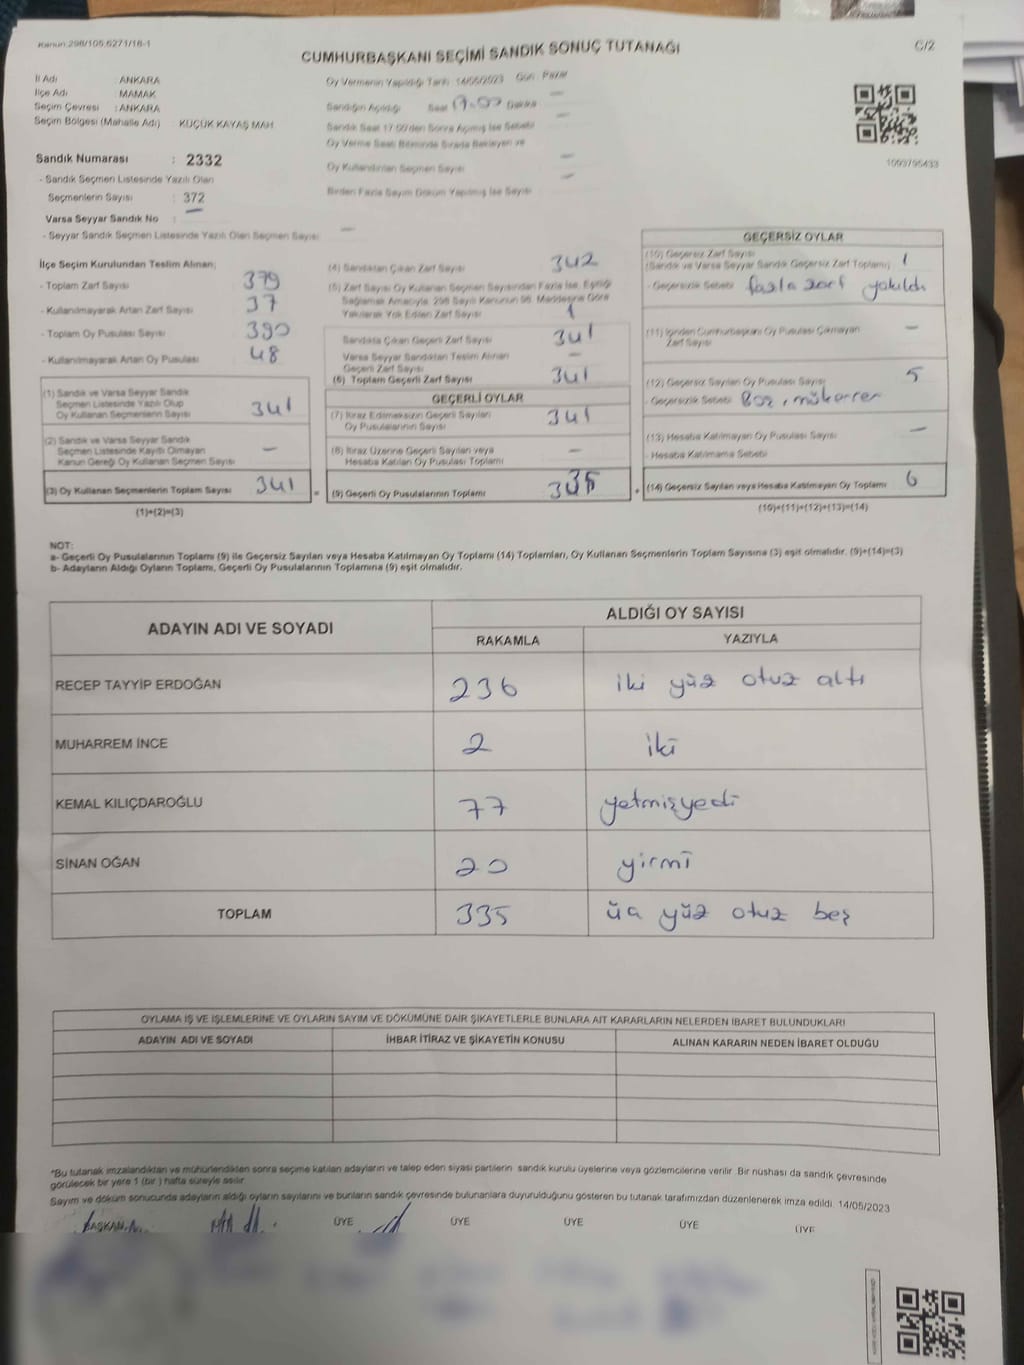 Kanun:298/105,6271/16-1
C/2
CUMHURBAŞKANI SEÇİMİ SANDIK SONUÇ TUTANAĞI
İl Adı : ANKARA
İlçe Adı : MAMAK
Seçim Çevresi : ANKARA
Seçim Bölgesi (Mahalle Adı) KÜÇÜK KAYAŞ MAH.
Sandık Numarası : 2332
- Sandık Seçmen Listesinde Yazılı Olan
Seçmenlerin Sayısı : 372
Varsa Seyyar Sandık No : —
- Seyyar Sandık Seçmen Listesinde Yazılı Olan Seçmen Sayısı —
Oy Vermenin Yapıldığı Tarih 14/05/2023 Gün Pazar
Sandığın Açıldığı Saat 17.00 Dakika —
Sandık Saat 17:00'den Sonra Açılmış İse Sebebi —
Oy Verme Saati Bitiminde Sırada Bekleyen ve
Oy Kullandırılan Seçmen Sayısı —
Birden Fazla Sayım Döküm Yapılmış İse Sayısı —
1093795433
İlçe Seçim Kurulundan Teslim Alınan;
- Toplam Zarf Sayısı 379
- Kullanılmayarak Artan Zarf Sayısı 37
- Toplam Oy Pusulası Sayısı 390
- Kullanılmayarak Artan Oy Pusulası 48
(1) Sandık ve Varsa Seyyar Sandık
Seçmen Listesinde Yazılı Olup
Oy Kullanan Seçmenlerin Sayısı 341
(2) Sandık ve Varsa Seyyar Sandık
Seçmen Listesinde Kayıtlı Olmayan
Kanun Gereği Oy Kullanan Seçmen Sayısı —
(3) Oy Kullanan Seçmenlerin Toplam Sayısı 341 =
(1)+(2)=(3)
(4) Sandıktan Çıkan Zarf Sayısı 342
(5) Zarf Sayısı Oy Kullanan Seçmen Sayısından Fazla İse, Eşitliği
Sağlamak Amacıyla, 298 Sayılı Kanunun 98. Maddesine Göre
Yakılarak Yok Edilen Zarf Sayısı 1
Sandıkta Çıkan Geçerli Zarf Sayısı 341
Varsa Seyyar Sandıktan Teslim Alınan
Geçerli Zarf Sayısı —
(6) Toplam Geçerli Zarf Sayısı 341
GEÇERLİ OYLAR
(7) İtiraz Edilmeksizin Geçerli Sayılan
Oy Pusulalarının Sayısı 341
(8) İtiraz Üzerine Geçerli Sayılan veya
Hesaba Katılan Oy Pusulası Toplamı —
(9) Geçerli Oy Pusulalarının Toplamı 335 +
GEÇERSİZ OYLAR
(10) Geçersiz Zarf Sayısı
(Sandık ve Varsa Seyyar Sandık Geçersiz Zarf Toplamı) 1
- Geçersizlik Sebebi fazla zarf yakıldı
(11) İçinden Cumhurbaşkanı Oy Pusulası Çıkmayan
Zarf Sayısı —
(12) Geçersiz Sayılan Oy Pusulası Sayısı 5
- Geçersizlik Sebebi Boş, mükerrer
(13) Hesaba Katılmayan Oy Pusulası Sayısı —
- Hesaba Katılmama Sebebi
(14) Geçersiz Sayılan veya Hesaba Katılmayan Oy Toplamı 6
(10)+(11)+(12)+(13)=(14)
NOT:
a- Geçerli Oy Pusulalarının Toplamı (9) ile Geçersiz Sayılan veya Hesaba Katılmayan Oy Toplamı (14) Toplamları, Oy Kullanan Seçmenlerin Toplam Sayısına (3) eşit olmalıdır. (9)+(14)=(3)
b- Adayların Aldığı Oyların Toplamı, Geçerli Oy Pusulalarının Toplamına (9) eşit olmalıdır.
ADAYIN ADI VE SOYADI
ALDIĞI OY SAYISI
RAKAMLA YAZIYLA
RECEP TAYYİP ERDOĞAN 236 iki yüz otuz altı
MUHARREM İNCE 2 iki
KEMAL KILIÇDAROĞLU 77 yetmişyedi
SİNAN OĞAN 20 yirmi
TOPLAM 335 üç yüz otuz beş
OYLAMA İŞ VE İŞLEMLERİNE VE OYLARIN SAYIM VE DÖKÜMÜNE DAİR ŞİKAYETLERLE BUNLARA AİT KARARLARIN NELERDEN İBARET BULUNDUKLARI
ADAYIN ADI VE SOYADI İHBAR İTİRAZ VE ŞİKAYETİN KONUSU ALINAN KARARIN NEDEN İBARET OLDUĞU
*Bu tutanak imzalandıktan ve mühürlendikten sonra seçime katılan adayların ve talep eden siyasi partilerin sandık kurulu üyelerine veya gözlemcilerine verilir. Bir nüshası da sandık çevresinde
görülecek bir yere 1 (bir) hafta süreyle asılır.
Sayım ve döküm sonucunda adayların aldığı oyların sayılarını ve bunların sandık çevresinde bulunanlara duyurulduğunu gösteren bu tutanak tarafımızdan düzenlenerek imza edildi. 14/05/2023
BAŞKAN ÜYE ÜYE ÜYE ÜYE ÜYE